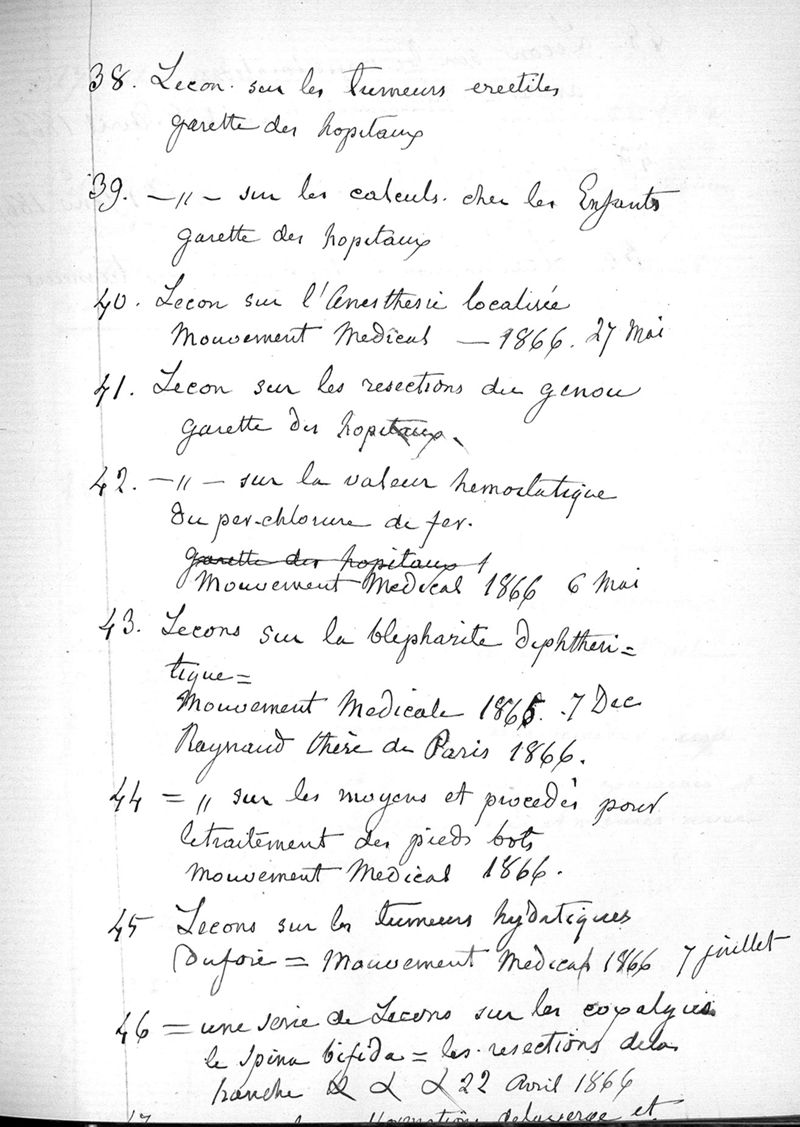 38. Lecon. sur les tumeurs erectiles
gazette des hopitaux
39. — " — sur les calculs. chez les Enfants
gazette des hopitaux
40. Lecon sur l'Anesthesie localisée
Mouvement Medical — 1866. 27 Mai
41. Lecon sur les resections du genou
gazette des hopitaux.
42. — " — sur la valeur hemostatique
du per-chlorure de fer.
gazette des hopitaux
Mouvement Medical 1866 6 Mai
43. Lecons sur la blepharite diphtheri=
tique=
Mouvement Medicale 1865. 7 Dec
Raynaud thèse de Paris 1866.
44 = " sur les moyens et procedés pour
le traitement des pieds bots
Mouvement Medical 1866.
45 Lecons sur les tumeurs hydatiques
du foie = Mouvement Medical 1866 7 juillet
46 = une serie de Lecons sur les coxalgies
le spina bifida = les resections de la
hanche & & & 22 Avril 1866